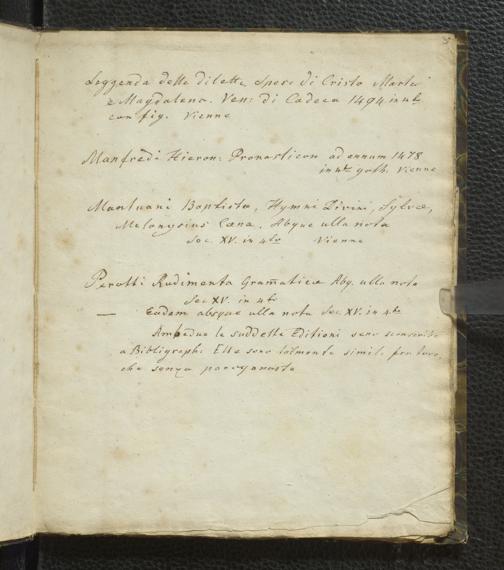 Leggenda delle dilette Spose di Cristo Marta
e Magdalena. Ven: di Cadeca 1494 in 4to
con fig. Vienne
Manfredi Hieron: Pronosticon ad annum 1478
in 4to goth. Vienne
Mantuani Baptista, Hymni Divini, Sylvæ,
Cæna. Absque ulla nota
Sec. XV. in 4to Vienne
Perotti Rudimenta Gramaticæ Abq. ulla nota
Sec XV. in 4to
— Eadem absque ulla nota Sec XV. in 4to
Ambedue le suddette Editioni sono
a Bibligraphi Elle sono simili fra loro,
che senza